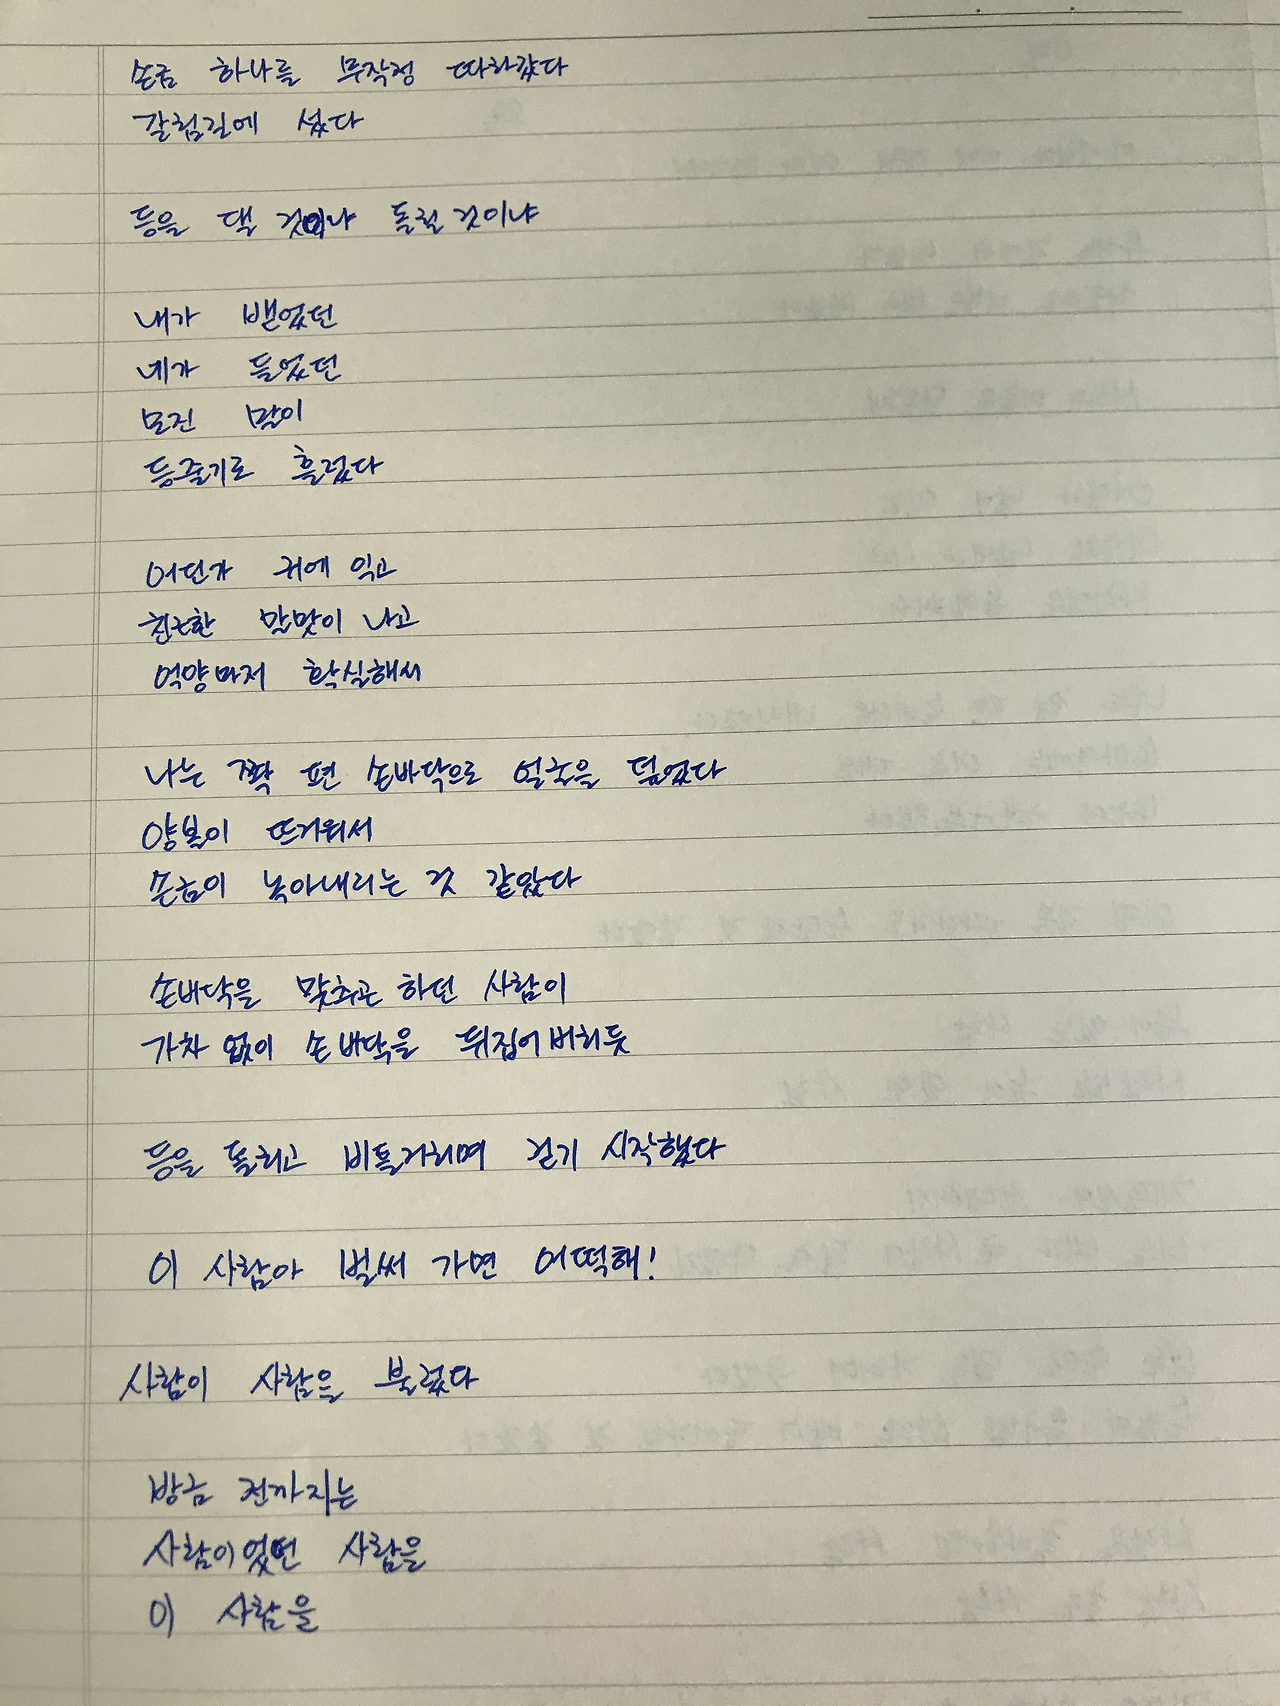 손금 하나를 무작정 따라갔다
갈림길에 섰다
등을 댈 것이냐 돌릴 것이냐
내가 뱉었던
네가 들었던
모진 말이
등줄기로 흘렀다
어딘가 귀에 익고
친근한 말맛이 나고
억양마저 확실해서
나는 쫙 편 손바닥으로 얼굴을 덮었다
양볼이 뜨거워서
손금이 녹아내리는 것 같았다
손바닥을 맞추곤 하던 사람이
가차 없이 손바닥을 뒤집어버리듯
등을 돌리고 비틀거리며 걷기 시작했다
이 사람아 벌써 가면 어떡해!
사람이 사람을 불렀다
방금 전까지는
사람이었던 사람을
이 사람을